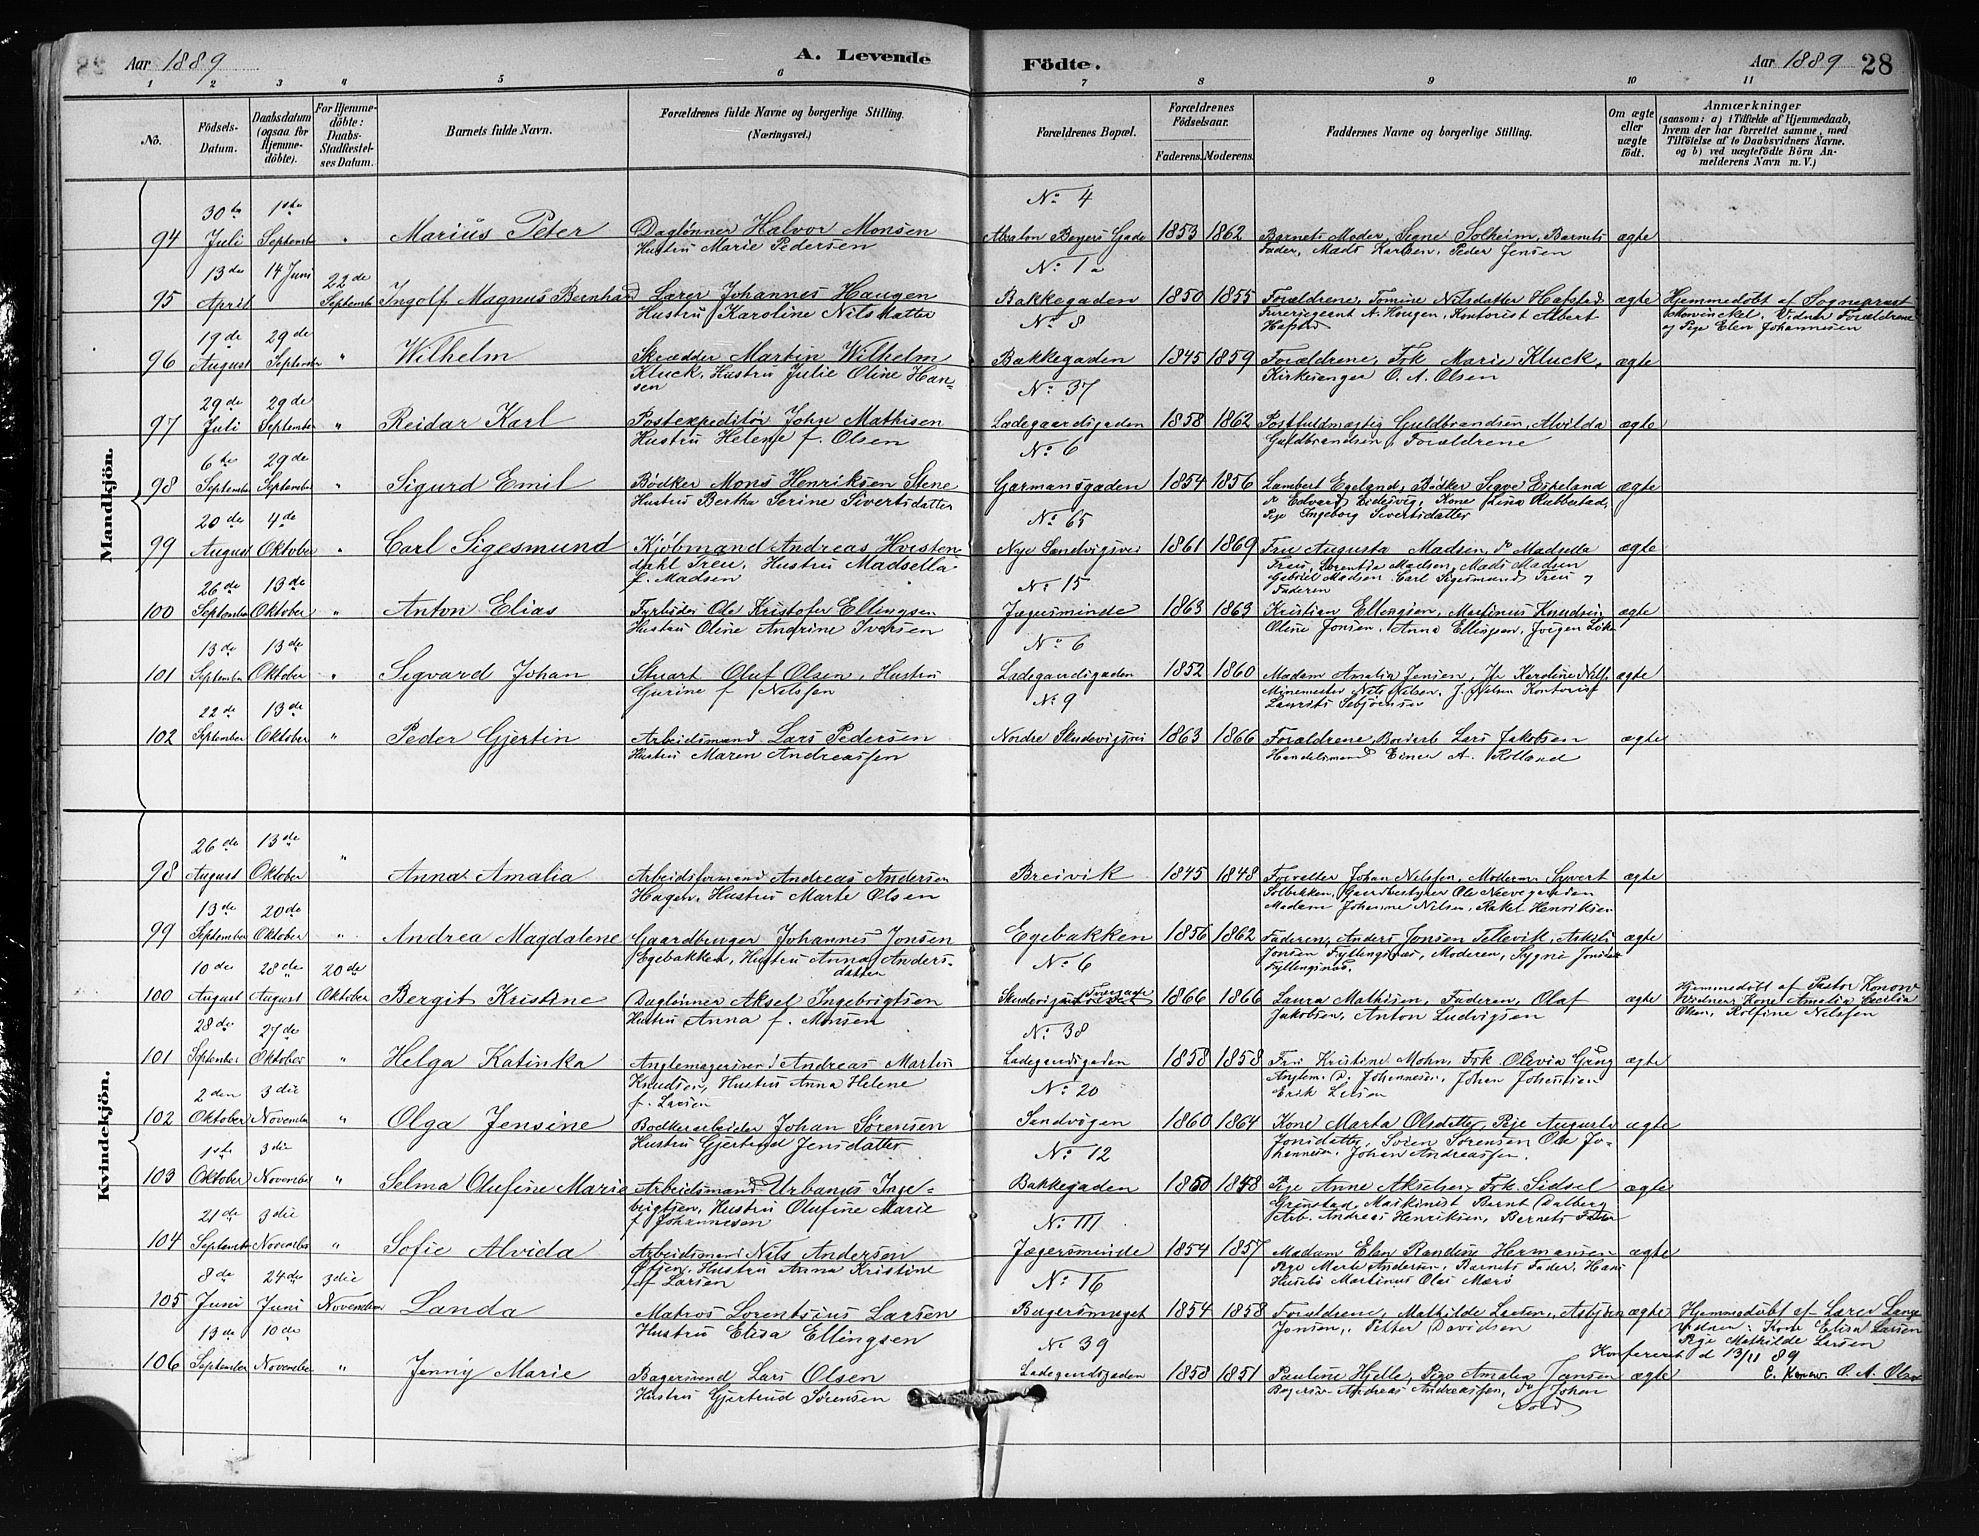 Aar 1889
A. Levende
Födte.
Aar 1889 28
1 2 3 " 5 6 7 8 9 10 11
No.
Födsels-Datum.
Daabsdatum (ogsaa for Hjemmedöbte).
For Hjemmedöbte: Daabs-Stadfæstelses Datum.
Barnets fulde Navn.
Forældrenes fulde Navne og borgerlige Stilling. (Næringsvei.)
Forældrenes Bopæl.
Forældrenes Födselsaar.
Faderens. Moderens.
Faddernes Navne og borgerlige Stilling.
Om ægte eller uægte födt.
Anmærkninger (saasom: a) i Tilfælde af Hjemmedaab, hvem der har forrettet samme, med Tilföielse af to Daabsvidners Navne. og b) ved uægtefödte Börn Anmelderens Navn m. V.)
Mandkjön.
30te 1ste No 4
94 Juli September " Marius Peter Daglønner Halvor Monsen Absalon Beyers Gade 1853 1862 Barnets Moder, Signe Solheim, Barnets ægte
Hustru Marie Pedersen Fader, Mads Karlsen, Peder Jensen
13de 14 Juni 22de No 1a
95 April September Ingolf Magnus Bernhard Lærer Johannes Haugen Bakkegaden 1850 1855 Forældrene, Tomine Nilsdatter Hafstad ægte Hjemmedøbt af Sognepræst
Hustru Karoline Nilsdatter A. Hougen, Kontorist Albert Vidner Forældrene
Hafstad og Pige Elen Johannesen
19de 29de No 8
96 August September " Wilhelm Skrædder Martin Wilhelm Bakkegaden 1845 1859 Forældrene, Frk Marie Kluck, ægte
Kluck, Hustru Julie Oline Han- Kirkesanger O. A. Olsen
sen
29de 29de No 37
97 Juli September " Reidar Karl Postexpeditør John Mathisen Ladegaardsgaden 1858 1862 Postfuldmægtig Guldbrandsen, Alvilda ægte
Hustru Helene f. Olsen Guldbrandsen, Forældrene
6te 29de No 6
98 September September " Sigurd Emil Bødker Mons Henriksen Stene Garmansgaden 1854 1856 Lambert Egeland, Bødker Sigve Espeland ægte
Hustru Bertha Serine Sivertsdatter Kone Lina
Pige Ingeborg Sivertsdatter
20de 4de No 65
99 August Oktober " Carl Sigesmund Kjøbmand Andreas Hvisten- Nye Sandvigsvei 1861 1869 Fru Augusta Madsen, do Madsella ægte
dahl Treu, Hustru Madsella Treu, Madsen, Mads Madsen
f. Madsen Gabriel Madsen Carl Sigesmund Treu og
Faderen
26de 13de No 15
100 September Oktober " Anton Elias Fyrbøder Ole Kristofer Ellingsen Jægersminde 1863 1863 Kristian Ellingsen, Martinus Knudsen ægte
Hustru Oline Andrine Iversen Oline Jonsen, Anna Ellingsen, Jørgen
13de 13de No 6
101 September Oktober " Sigvard Johan Stuart Oluf Olsen, Hustru Ladegaardsgaden 1852 1860 Madam Amalia Jensen, Karoline Nilsen ægte
Gurine f Nilsen Minemester Nils Nilsen, J. Nilsen Kontorist
Laurits
22de 13de No 9
102 September Oktober " Peder Gjertin Arbeidsmand Lars Pedersen Nordre Skudevigsvei 1863 1866 Forældrene, Lars Jakobsen ægte
Hustru Maren Andreassen Handelsmand Einer A. Rolland
Kvindekjön.
26de 13de
98 August Oktober " Anna Amalia Arbeidsformand Andreas Andersen Breivik 1845 1848 Forvalter Johan Nilsen, ægte
Hagen, Hustru Marte Olsen Solbakken, Gaardbestyrer Ole Neevegaarden
Madam Johanne Nilsen, Rakel Henriksen
13de 20de
99 September Oktober " Andrea Magdalene Gaardbruger Johannes Jonsen Egebakken 1856 1862 Faderen, Anders Jonsen Tellevik, ægte
Egebakken, Hustru Anna Anders- Jonsen Fyllingsnæs, Moderen, Sygni
datter Fyllingsnæs.
10de 28de 20de No 6
100 August August Oktober Bergit Kristine Daglønner Aksel Ingebrigtsen 1866 1866 Laura Mathisen, Faderen, Olaf ægte Hjemmedøbt af Pastor Konow
Hustru Anna f. Monsen Jakobsen, Anton Ludvigsen Vidner Kone Amalia Cecilia
Olsen, Rolfine Nilsen
28de 27de No 38
101 September Oktober " Helga Katinka Andreas Martin Ladegaardsgaden 1858 1858 Fru Kristine Mohn, Frk. Olevia Gung ægte
Knudsen, Hustru Anna Helene Johannesen, Johan
f. Larsen Erik Larsen
2den 3die No 20
102 Oktober November " Olga Jensine Bødkerarbeider Johan Sørensen Sandvigen 1860 1864 Kone Marta Olsdatter, Pige Augusta ægte
Hustru Gjertrud Jensdatter Jonsdatter, Sørensen Ole Jo-
hannesen, Johan Andreassen.
1ste 3die No 12
103 Oktober November " Selma Olufine Marie Arbeidsmand Urbanus Inge- Bakkegaden 1850 1848 Pige Anne Akselsen, Frk. Sidsel ægte
brigtsen, Hustru Olufine Marie Grimstad, Maskinist Bernt Dalberg
f Johannesen Arb. Andreas Henriksen, Barnets Fader
21de 3die No 111
104 September November " Sofie Alvida Arbeidsmand Nils Andersen Jægersminde 1854 1857 Madam Elen Randine Hermansen ægte
Øfjen, Hustru Anna Kristine Pige Marte Andersen, Barnets Fader, Hans
f Larsen Husebø Martinus Olai Mærø
8de 24de 3die No 16
105 Juni Juni November Landa Matros Lorentsius Larsen Bagersmuget 1854 1858 Forældrene, Mathilde Larsen, Asbjørn ægte Hjemmedøbt af Lærer Lange
Hustru Elisa Ellingsen Jonsen, Petter Davidsen Vidner: Kone Elisa Larsen
Pige Mathilde Larsen
13de 10de No 39 Konfereret d 13/11 89
106 September November " Jenny Marie Bagersvend Lars Olsen Ladegaardsgaden 1858 1851 Pauline Hjelle, Pige Amalia Jansen ægte C. Konow. O. A. Olsen
Hustru Gjertrud Sørensen Andreas Andreassen, do Johan